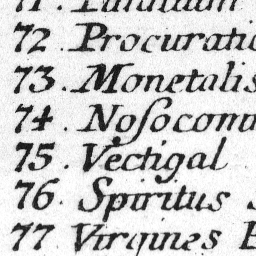 72. Procuratio
73. Monetalis
74. Noſocom
75. Vectigal
76. Spiritus
77. Virgines